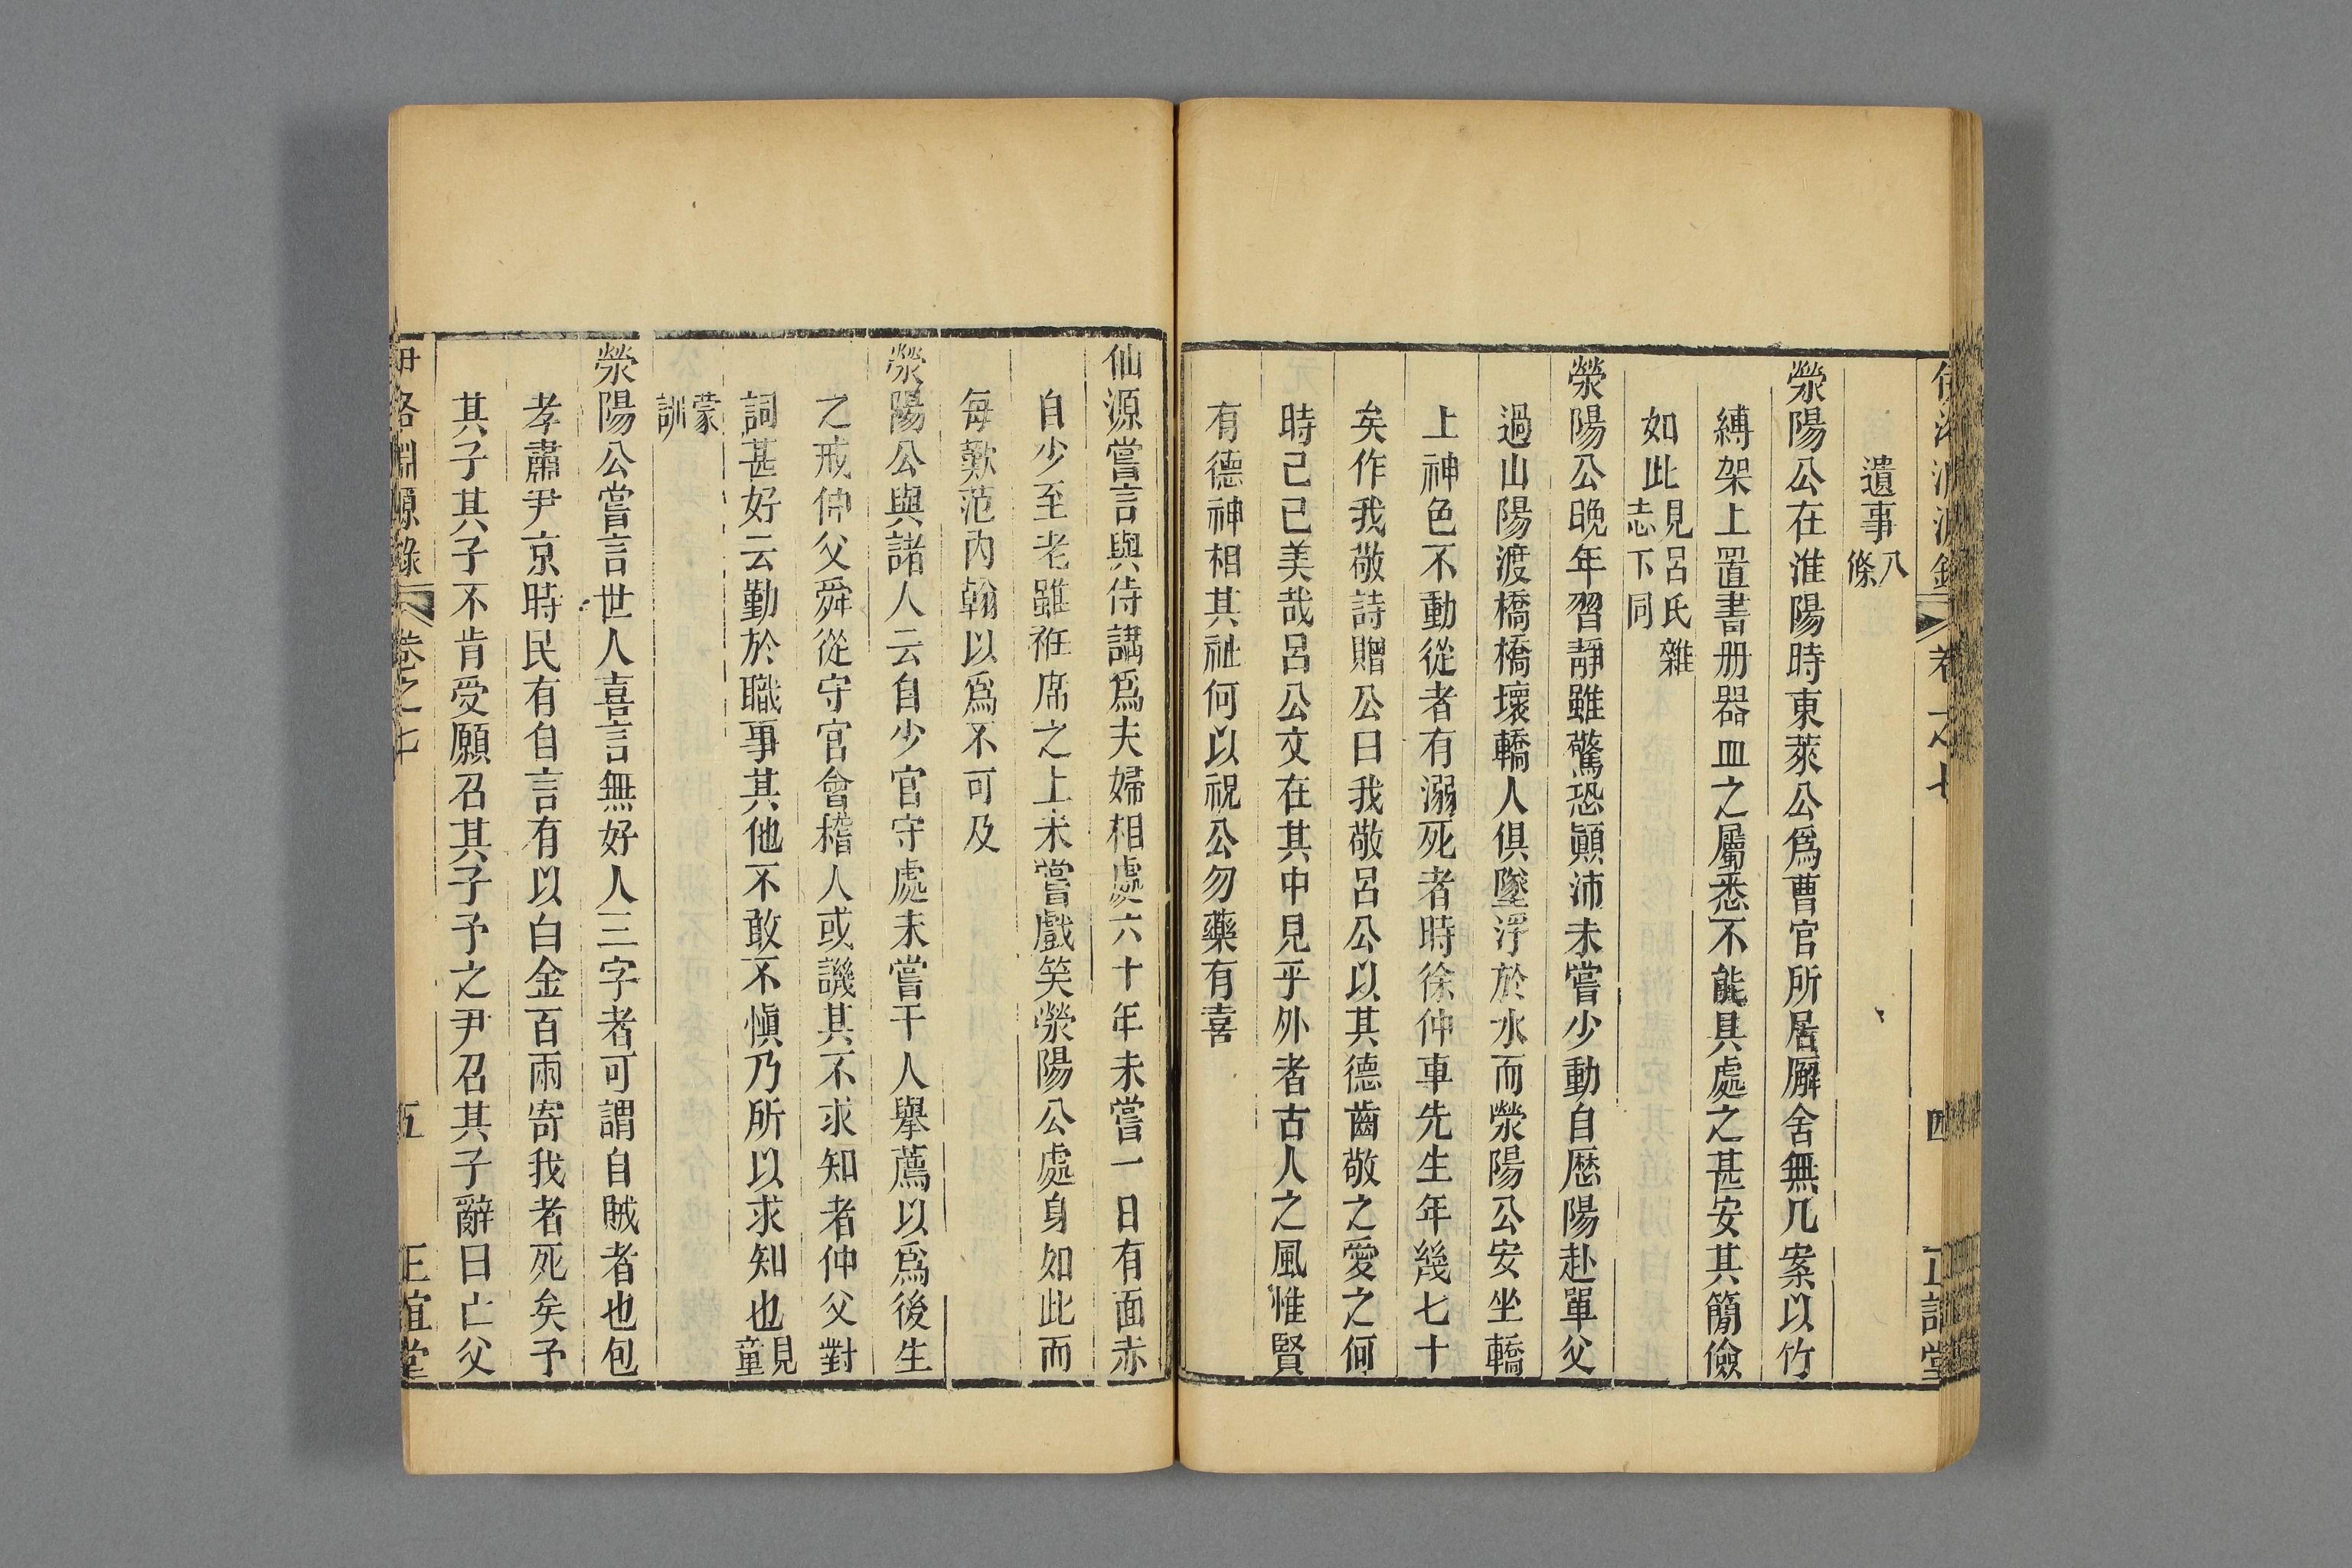 遺事八條
滎陽公在淮陽時東萊公爲曹官所居廨舍無几案以竹
縛架上置書册器皿之屬悉不能具處之甚安其簡儉
如此見呂氏雜志下同
滎陽公晚年習靜雖驚恐顚沛未嘗少動自歷陽赴單父
過山陽渡橋橋壞轎人俱墜浮於水而滎陽公安坐轎
上神色不動從者有溺死者時徐仲車先生年幾七十
矣作我敬詩贈公曰我敬呂公以其德齒敬之愛之何
時已已美哉呂公文在其中見乎外者古人之風惟賢
有德神相其祉何以祝公勿藥有喜
仙源嘗言與侍講爲夫婦相處六十年未嘗一日有面赤
自少至老雖袵席之上未嘗戲笑滎陽公處身如此而
每歎范內翰以爲不可及
滎陽公與諸人云自少官守處未嘗干人舉薦以爲後生
之戒仲父舜從守官會稽人或譏其不求知者仲父對
詞甚好云勤於職事其他不敢不愼乃所以求知也見童
蒙訓
滎陽公嘗言世人喜言無好人三字者可謂自賊者也包
孝肅尹京時民有自言有以白金百兩寄我者死矣予
其子其子不肯受願召其子予之尹召其子辭曰亡父
伊洛淵源錄 卷之七 五 正誼堂